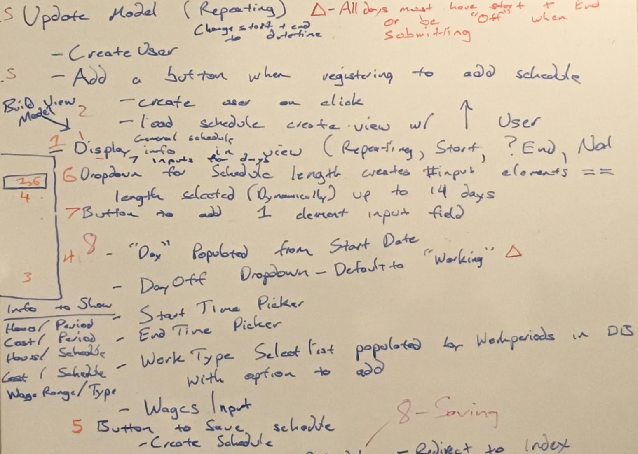 .5 Update Model (Repeating) Δ - All days must have start + End
or be "Off" when
submitting
Change start + end
to datetime
- Create User
.5 - Add a button when registering to add schedule
- Create user on click
- Load schedule create view w/ ↑ User
Build View
Model
2
General schedule
1 - Display info in view (Repeating, Start, ? End, Nal
7 inputs for days
6 Dropdown for Schedule length creates # input elements ==
length selected (Dynamically) up to 14 days
7 Button to add 1 element input field
1,6
4
3
4 8 - "Day" Populated from Start Date
- Day Off Dropdown - Default to "Working" Δ
- Start Time Picker
- End Time Picker
- Work Type Select list populated by Workperiods in DB
with option to add
- Wages Input
Info to Show
Hours/Period
Cost/Period
Hours/Schedule
Cost/Schedule
Wage Range/Type
5 Button to Save schedule
- Create Schedule
8 - Saving
- Redirect to Index